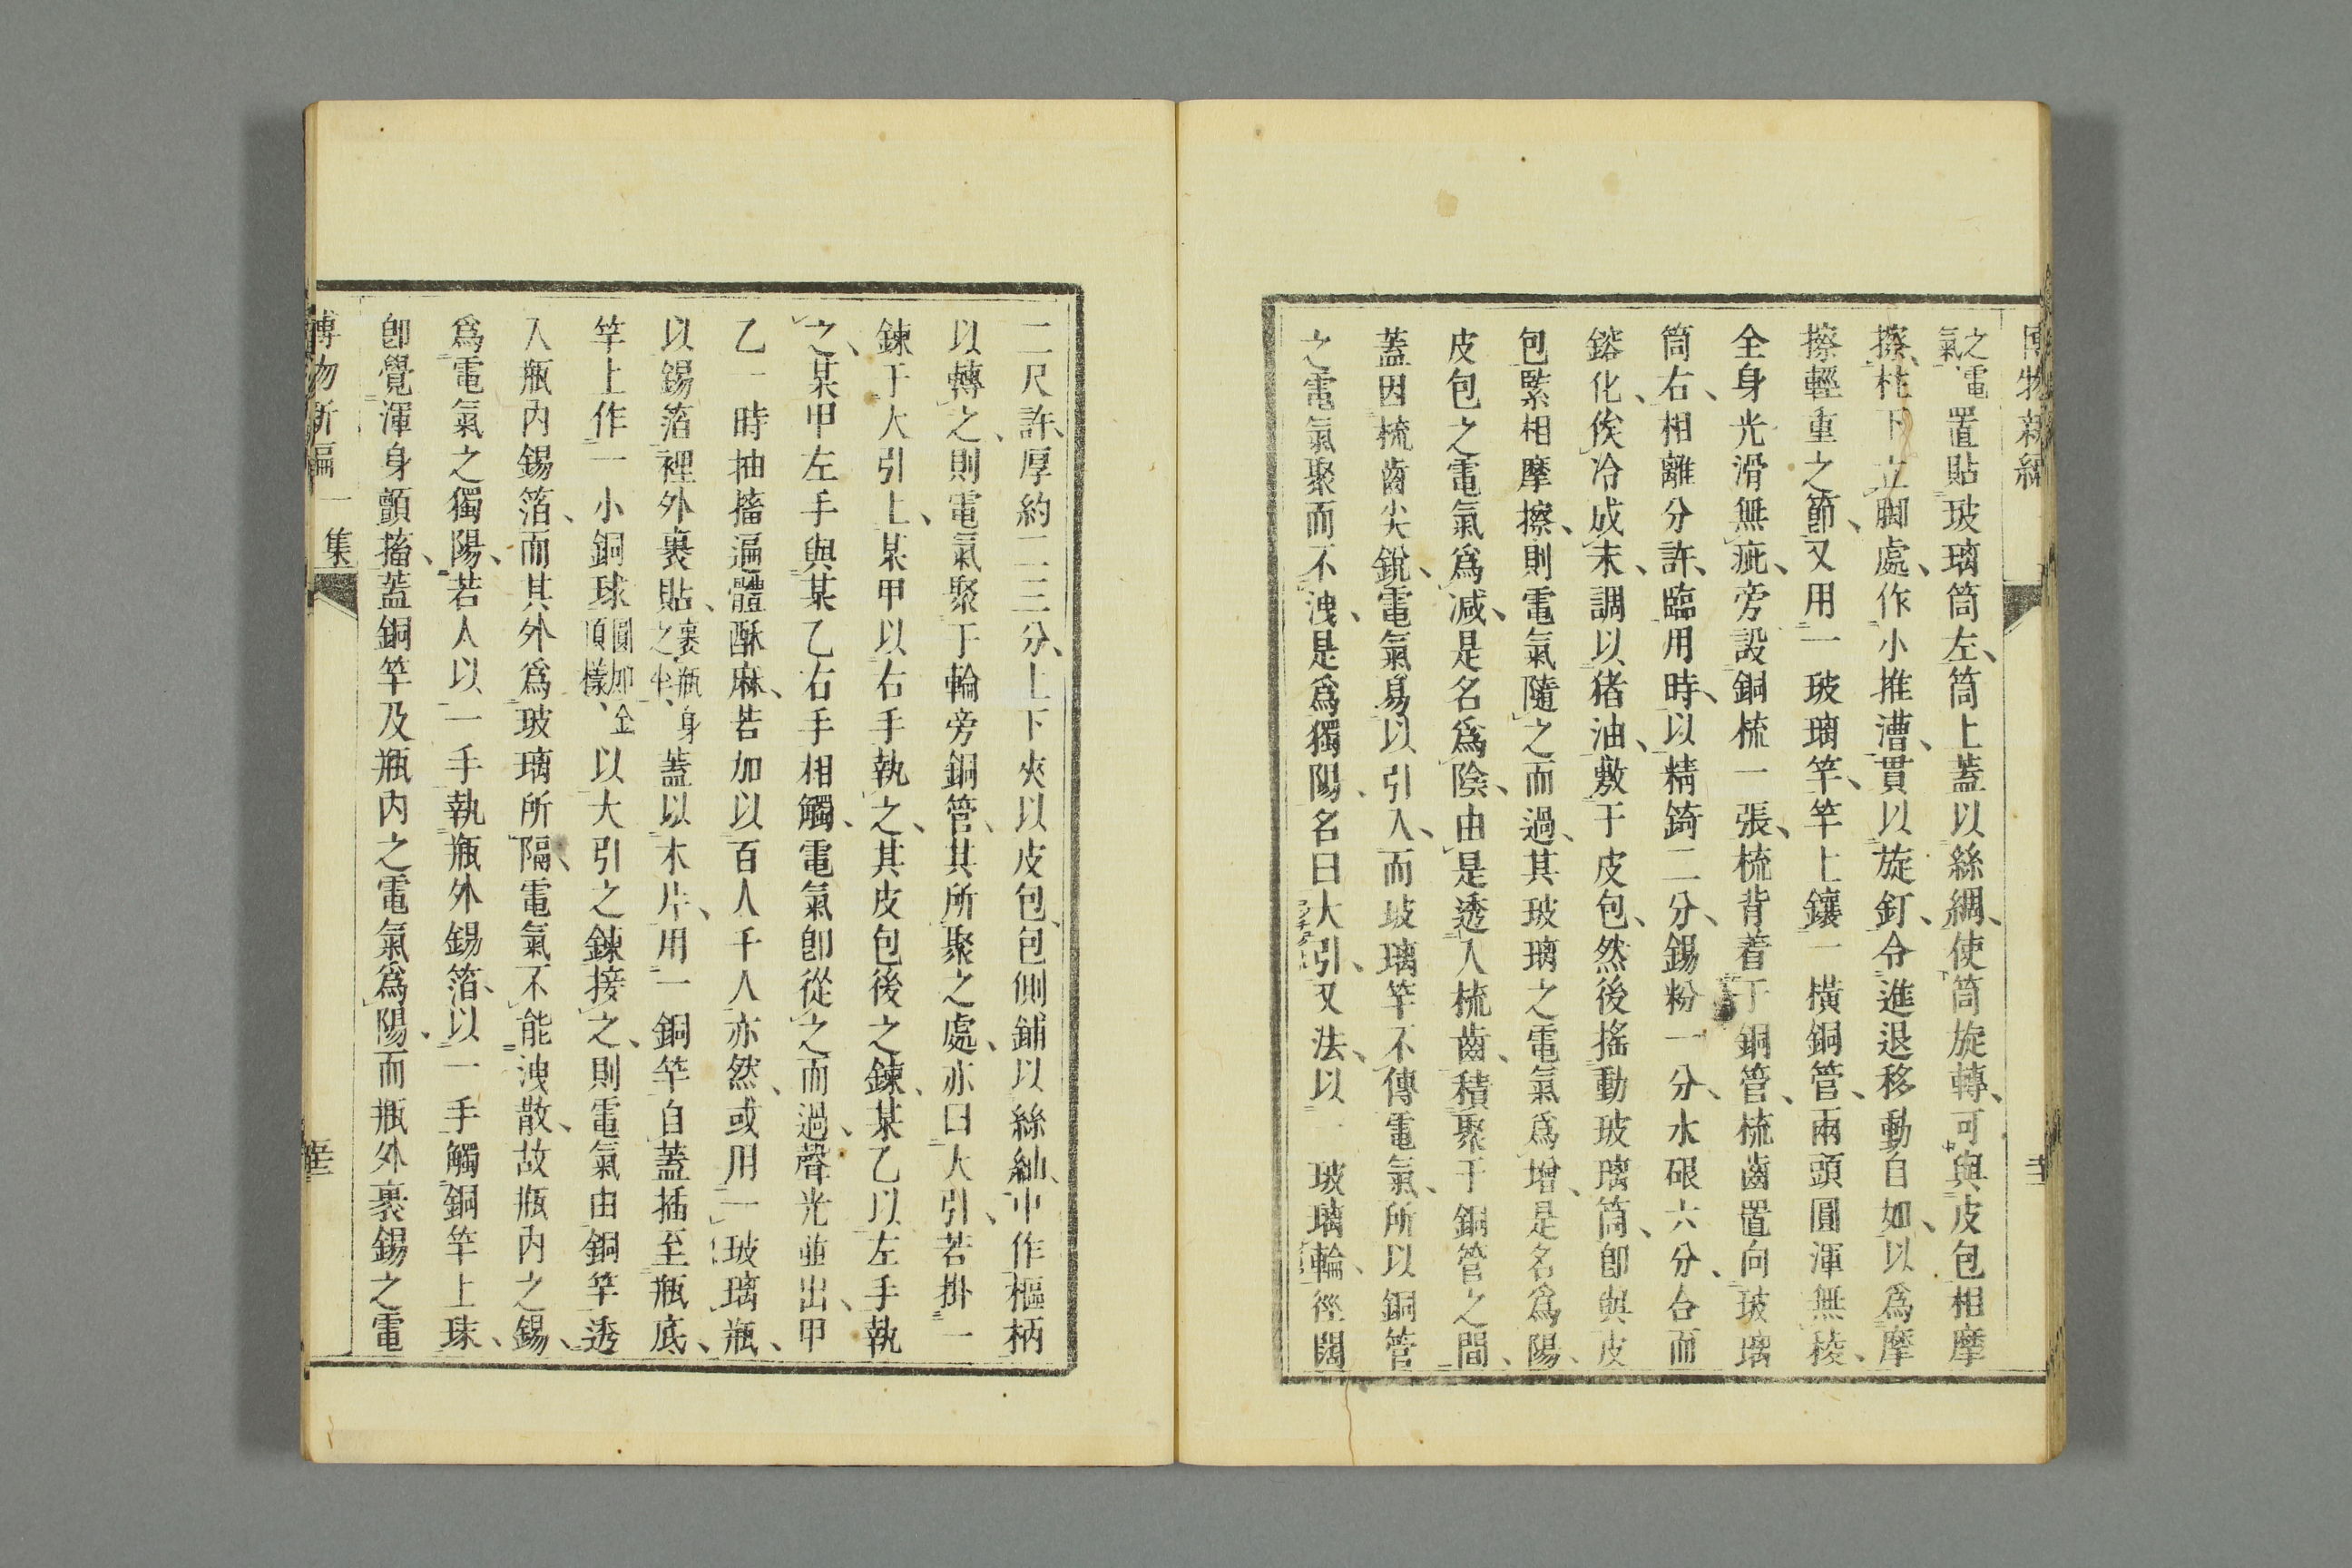 博物新編
之電氣、置貼玻璃筒左、筒上蓋以絲綢、使筒旋轉、可與皮包相摩
擦、柱下立脚處、作小推漕、貫以旋釘、令進退移動自如、以爲摩
擦輕重之節、又用一玻璃竿、竿上鑲一橫銅管、兩頭圓渾無稜、
全身光滑無疵、旁設銅梳一張、梳背着于銅管、梳齒置向玻璃
筒右、相離分許、臨用時、以精錡二分、錫粉一分、水硍六分、合而
鎔化、俟冷成末、調以猪油、敷于皮包、然後搖動玻璃筒、卽與皮
包緊相摩擦、則電氣隨之而過、其玻璃之電氣爲增、是名爲陽、
皮包之電氣爲减、是名爲陰、由是透人梳齒、積聚于銅管之間、
蓋因梳齒尖銳、電氣易以引入、而玻璃竿不傳電氣、所以銅管
之電氣聚而不洩、是爲獨陽、名曰大引、又法、以一玻璃輪、徑闊
二尺許、厚約二三分、上下夾以皮包、包側鋪以絲紬、中作樞柄
以轉之、則電氣聚于輪旁銅管、其所聚之處、亦曰大引、若掛一
鍊于大引上、某甲以右手執之、其皮包後之鍊、某乙以左手執
之、某甲左手與某乙右手相觸、電氣卽從之而過、聲光並出、甲
乙一時抽搐、遍體酥麻、若加以百人千人亦然、或用一玻璃瓶、
以錫箔裡外裹貼、裹瓶身之半、蓋以木片、用一銅竿自蓋插至瓶底、
竿上作一小銅球圓如金頂樣、以大引之鍊接之、則電氣由銅竿透
入瓶內錫箔、而其外爲玻璃所隔、電氣不能洩散、故瓶內之錫、
爲電氣之獨陽、若人以一手執瓶外錫箔、以一手觸銅竿上球、
卽覺渾身顫搐、蓋銅竿及瓶內之電氣爲陽、而瓶外裹錫之電
博物新編一集